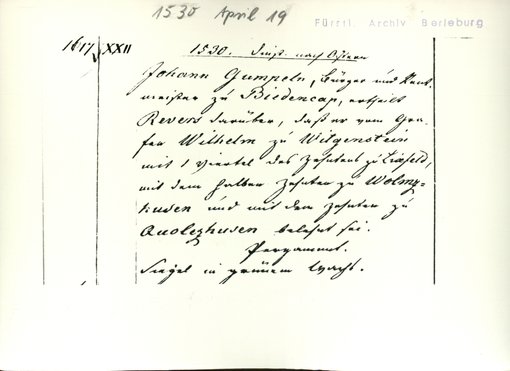 1530 April 19
Fürstl. Archiv Berleburg
1617 XXII
1530. Dinst. nach Ostern
Johann Gumpeln, Bürger und Rent-
meister zu Biedencap, ertheilt
Revers darüber, daß er vom Gra-
fen Wilhelm zu Witgenstein
mit 1 Viertel des Zehntens zu
mit dem halben Zehnten zu
und mit dem Zehnten zu
belehnt sei.
Pergament.
Siegel in grünem Wachs.